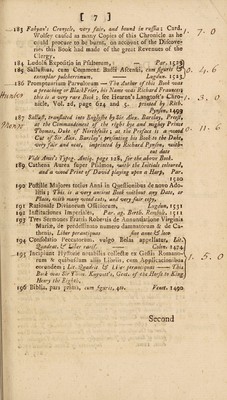 [ 7 ]
183 Fabyan's Cronycle, very fair, and bound in russia; Card.
Wolsey caused as many Copies of this Chronicle as he
could procure to be burnt, on account of the Discove-
ries this Book had made of the great Revenues of the
Clergy.
1. 7. 0
184 Lodolfi Expositio in Psalmum, Par. 1528
185 Sallustius, cum Comment Badii Ascensii, cum figuris &
exemplar pulcherrimum. Lugdun. 1523
0. 4. 6
186 Promptuarium Parvulorum — The Author of this Book was
a preaching or Black Frier, his Name was Richard Fraunces;
this is a very rare Book; See Hearne's Langtoft's Chro-
nicle, Vol. 2d, page 624 and 5. printed by Rich.
Pynson, 1499
Hunter
1. 3. 0
187 Sallust, translated into Englishe by Sir Alex. Barclay, Preest,
at the Commandment of the right hye and mighty Prince
Thomas, Duke of Northfolke; at the Preface is a wood
Cut of Sir Alex. Barclay's presenting his Book to the Duke,
very fair and neat, imprinted by Richard Pynson, with-
out date
0. 11. 6
Vide Ames's Typg. Antiq. page 128, for the above Book.
189 Cathena Aurea super Psalmos, with the Initials coloured,
and a wood Print of David playing upon a Harp, Par.
1520
190 Postille Majores totius Anni in Questionibus de novo Ado-
litis; This is a very antient Book without any Date, or
Place, with many wood cuts, and very fair copy.
191 Rationale Divinorum Officiorum, Lugdun, 1551
192 Institutiones Imperiales, Par. ap. Berth. Rembolt, 1511
193 Tres Sermones Fratris Roberti de Annunciatione Virginis
Marie, de predestinato numero damnatorum & de Ca-
thenis, Liber perantiquus sine anno & loco
194 Consolatio Peccatorum, vulgo Belas appellatur, Lit.
Quadrat. & Liber rariss. Colon. 1474
195 Incipiunt Hystorie notabiles collecte ex Gestis Romano-
rum & quibusdam aliis Libris, cum Applicationibus
eorundem; Lit. Quadrat & Liber perantiquus — This
Book was Sir Thom. Kapvett's, Gent. of the Horse to King
Henry the Eighth.
1. 5. 0
196 Biblia, pars primi, cum figuris, 4to. Venet. 1490
Second